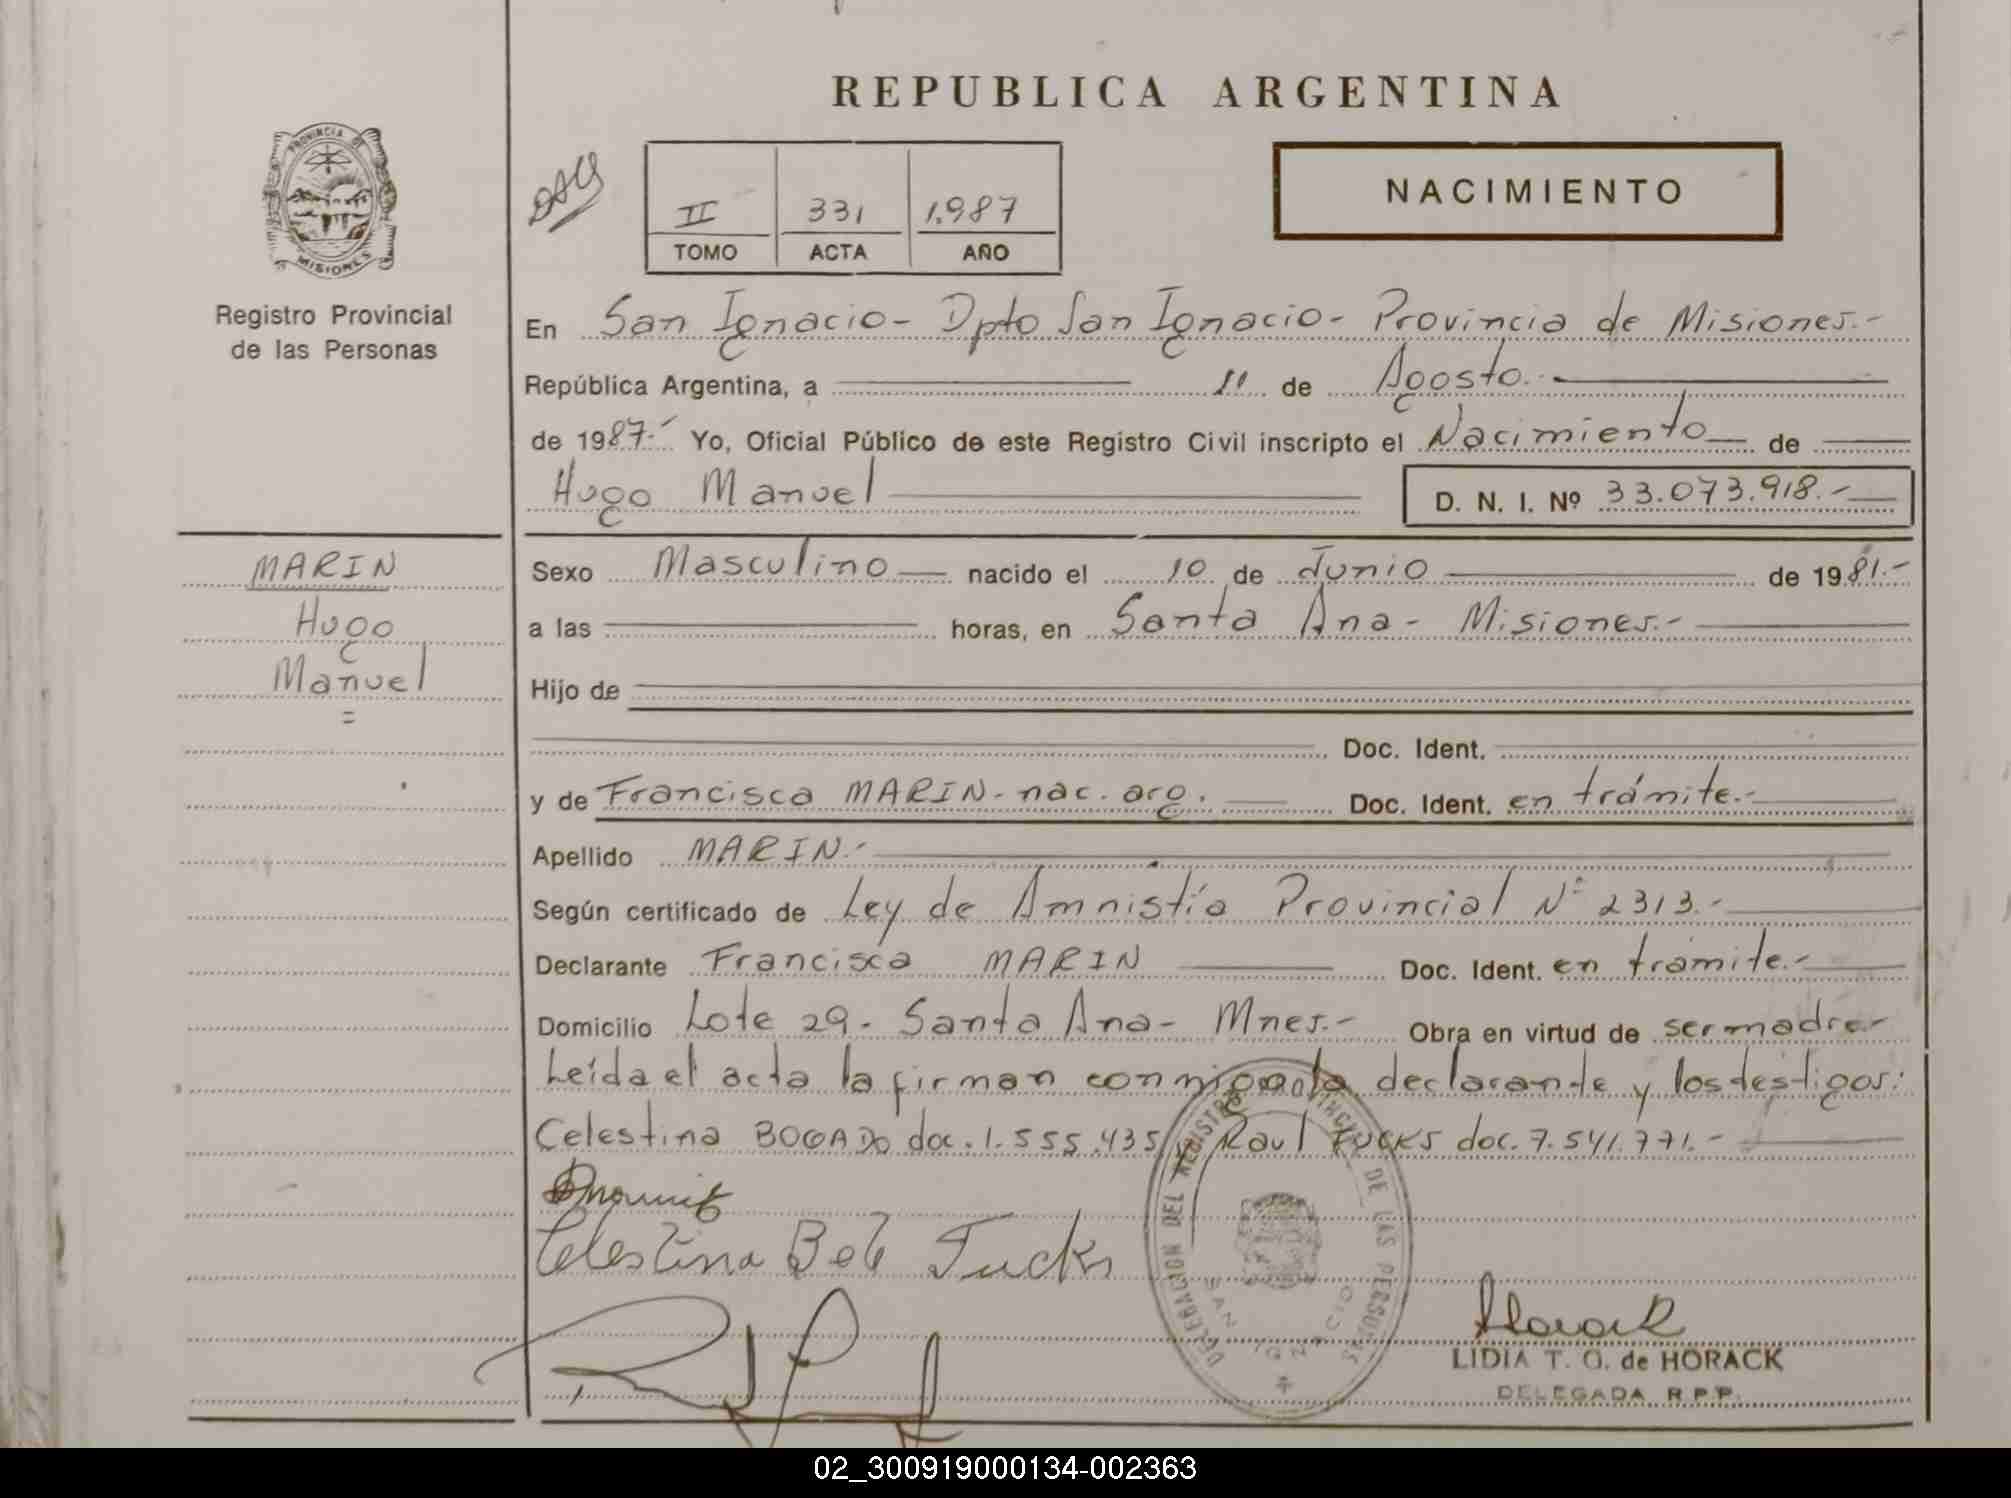 REPUBLICA ARGENTINA
PROVINCIA DE
MISIONES
Registro Provincial
de las Personas
II 331 1.987
TOMO ACTA AÑO
NACIMIENTO
En San Ignacio- Dpto San Ignacio- Provincia de Misiones.-
República Argentina, a 11 de Agosto.-
de 1987.- Yo, Oficial Público de este Registro Civil inscripto el Nacimiento de
Hugo Manuel D. N. I. Nº 33.073.918.-
MARIN
Hugo
Manuel
=
Sexo Masculino nacido el 10 de Junio de 1981.-
a las horas, en Santa Ana- Misiones.-
Hijo de
Doc. Ident.
y de Francisca MARIN- nac. arg. Doc. Ident. en trámite.-
Apellido MARIN.-
Según certificado de Ley de Amnistía Provincial Nº 2313.-
Declarante Francisca MARIN Doc. Ident. en tramite.-
Domicilio Lote 29- Santa Ana- Mnes.- Obra en virtud de ser madre.-
Leída el acta la firman conmigo la declarante y los testigos:
Celestina BOGADO doc. 1.555.435 y Raul FUCKS doc. 7.541.771.-
Celestina Fucks
DELEGACION DEL REGISTRO PROVINCIAL DE LAS PERSONAS
SAN IGNACIO
Horack
LIDIA T. G. de HORACK
DELEGADA R.P.P.
02_300919000134-002363